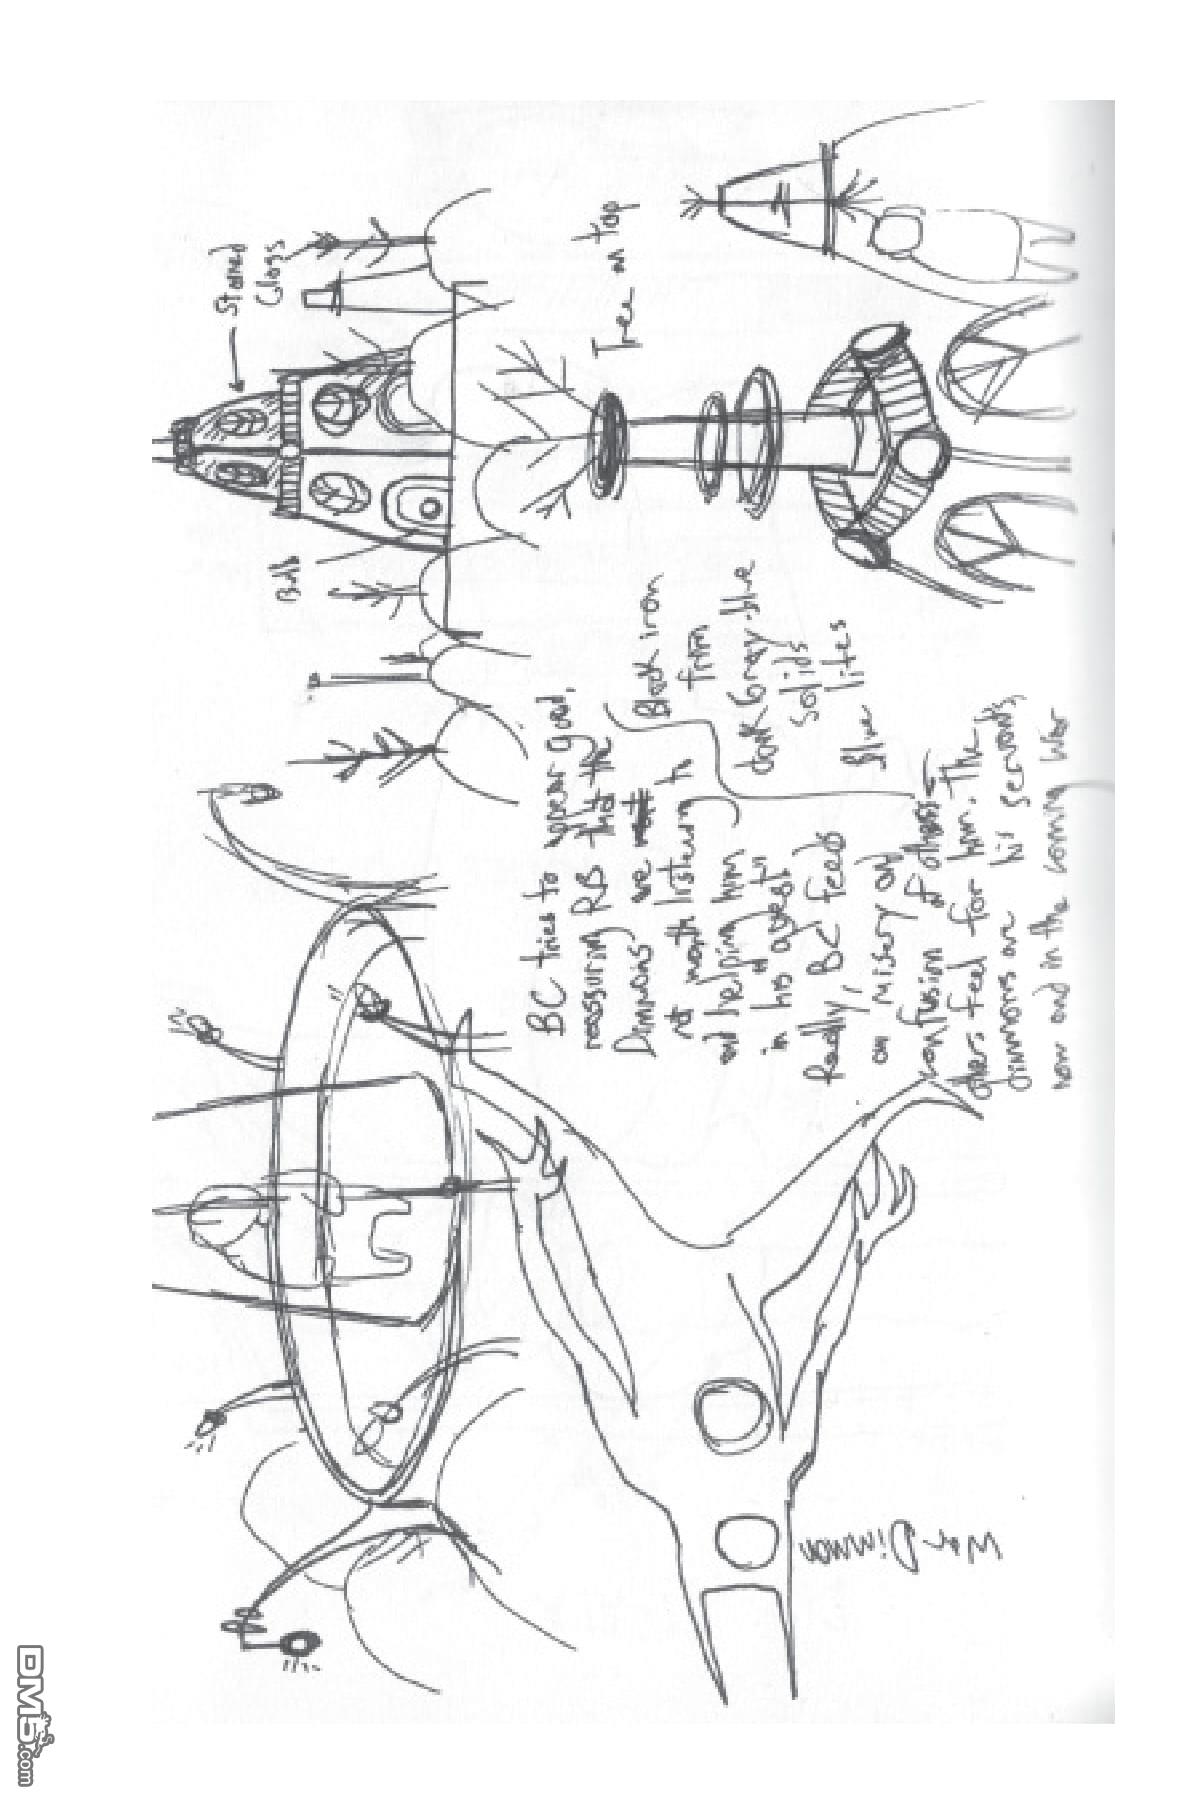 Stained
Glass
Bulb
Tree on top
Black iron
trim
dark Gray-blue
solids
Blue lites
BC tries to appear good,
reassuring RB that the
Dimmons are not
not worth listening to
and helping him
in his "quest"
Really, BC feeds
on misery and
confusion of others
others feel for him. The
Dimmons are his servants,
now and in the coming War
War Dimmon
DMS.com